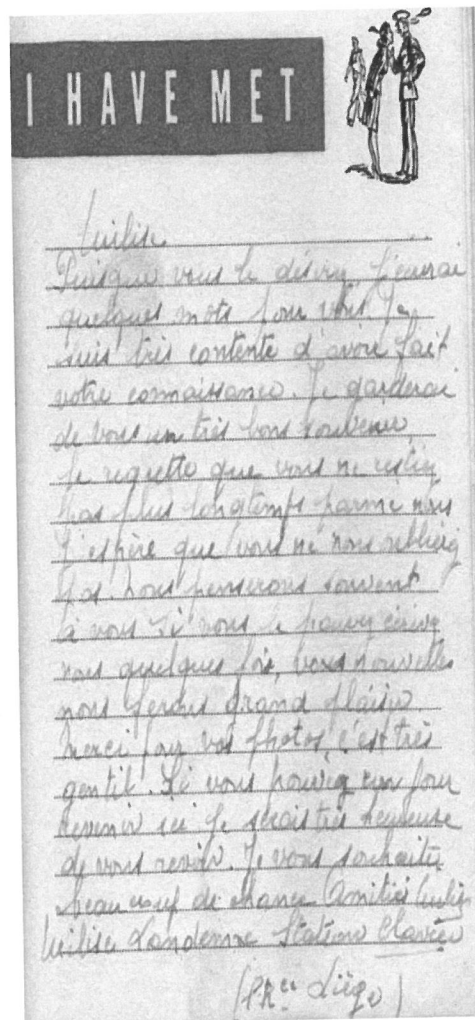 I HAVE MET
Puisque vous le désirez j'écrirai
quelques mots pour vous. Je
suis très contente d'avoir fait
votre connaissance. Je garderai
de vous un très bons souvenir
Je regrette que vous ne restiez
pas plus longtemps parmi nous
J'espère que vous ne nous oublierez
pas. nous penserons souvent
à vous Si vous le pouvez écrivez
nous quelques fois, vous nouvelles
nous ferons grand plaisir.
Merci pour vos photos, c'est très
gentil. Si vous pouviez un jour
revenir ici je serais très heureuse
de vous revoir. Je vous souhaite
beaucoup de chance Amitiés
Landenne Station Clavier
(Pr<sup>ce</sup> Liège)